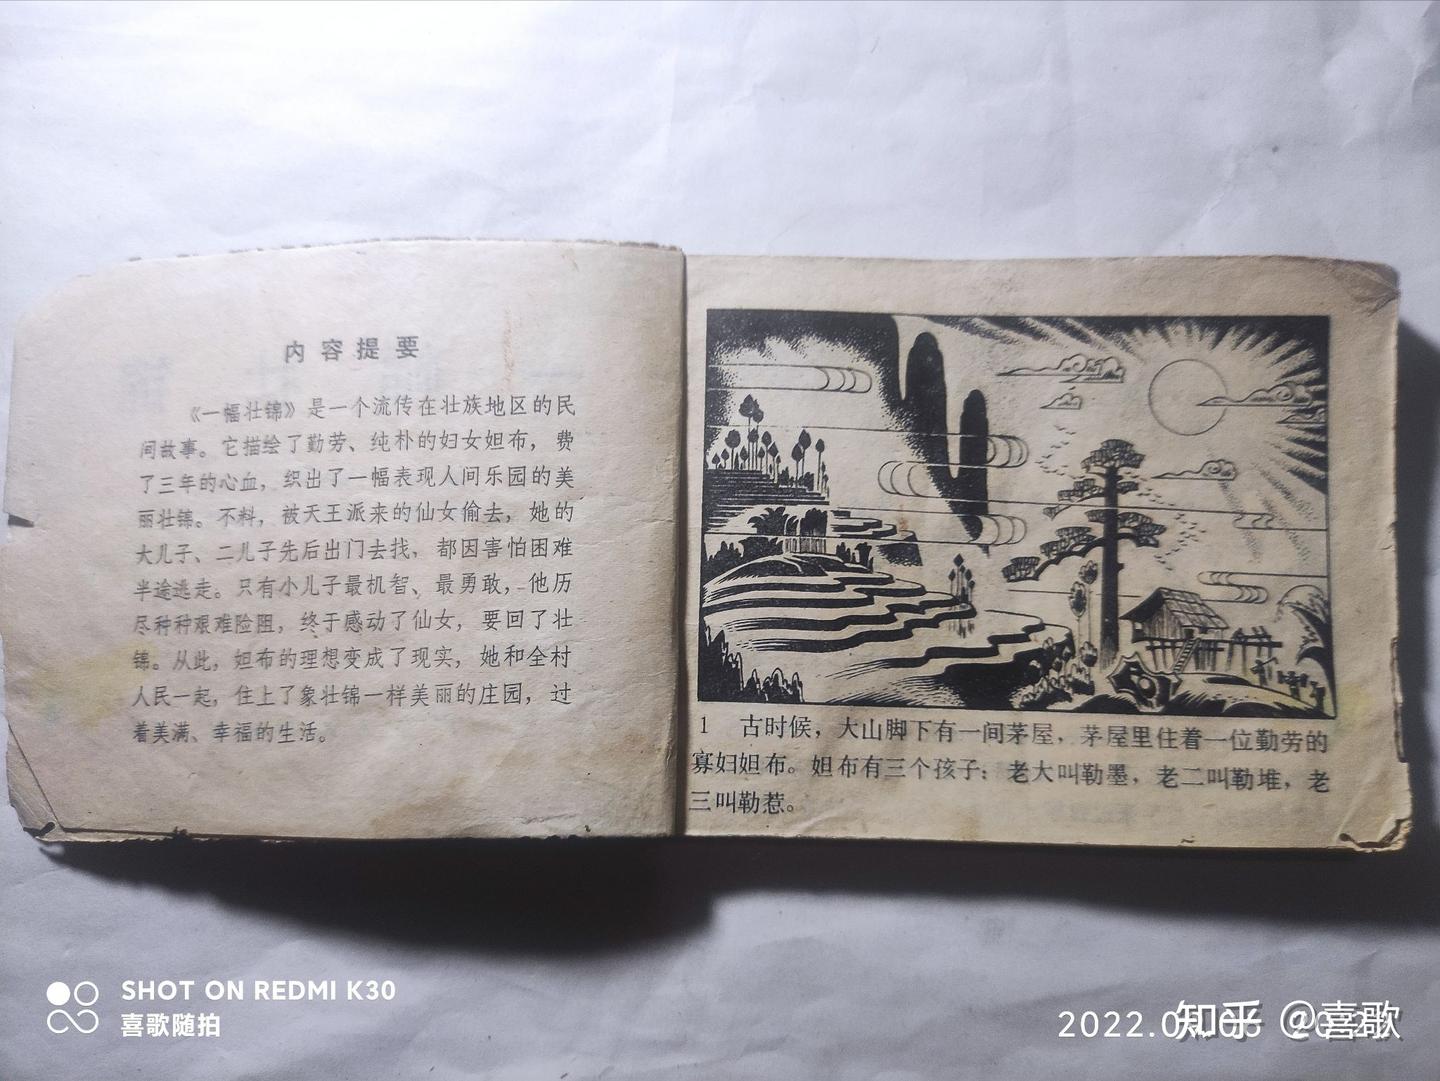 内容提要
《一幅壮锦》是一个流传在壮族地区的民
间故事。它描绘了勤劳、纯朴的妇女妲布，费
了三年的心血，织出了一幅表现人间乐园的美
丽壮锦。不料，被天王派来的仙女偷去，她的
大儿子、二儿子先后出门去找，都因害怕困难
半途逃走。只有小儿子最机智、最勇敢，他历
尽种种艰难险阻，终于感动了仙女，要回了壮
锦。从此，妲布的理想变成了现实，她和全村
人民一起，住上了象壮锦一样美丽的庄园，过
着美满、幸福的生活。
1 古时候，大山脚下有一间茅屋，茅屋里住着一位勤劳的
寡妇妲布。妲布有三个孩子：老大叫勒墨，老二叫勒堆，老
三叫勒惹。
SHOT ON REDMI K30
喜歌随拍
知乎 @喜歌